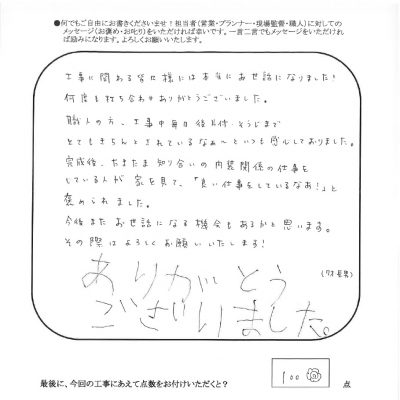 ●何でもご自由にお書きくださいませ！担当者(営業・プランナー・現場監督・職人)に対しての
メッセージ(お褒め・お叱り)をいただければ幸いです。一言二言でもメッセージをいただけれ
ば励みになります。よろしくお願いいたします。
工事に関わる皆々様には本当にお世話になりました！
何度も打ち合わせありがとうございました。
職人の方、工事中毎日後片付・そうじまで
とてもきちんとされているなぁ〜といつも感心しておりました。
完成後、たまたま知り合いの内装関係の仕事を
している人が家を見て、「良い仕事をしているなあ！」と
褒められました。
今後またお世話になる機会もあるかと思います。
その際はよろしくお願いいたします！
ありがとう
ございました。
長男)
最後に、今回の工事にあえて点数をお付けいただくと？
100
点